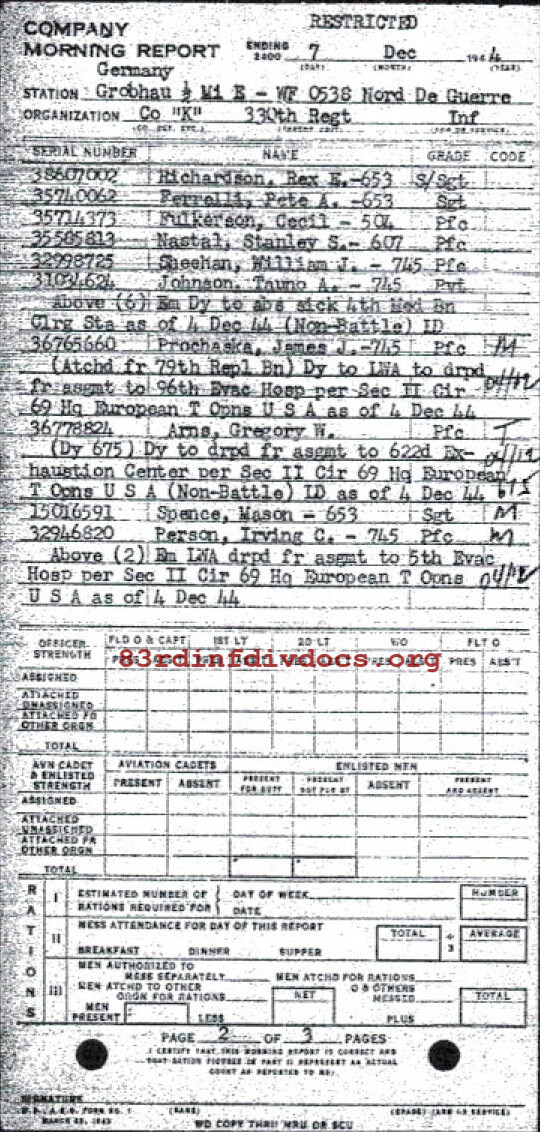 RESTRICTED
COMPANY
MORNING REPORT ENDING 2400 7 Dec 1944
(DAY) (MONTH) (YEAR)
Germany
STATION Grobhau ½ Mi E - WF 0538 Nord De Guerre
ORGANIZATION Co "K" 330th Regt Inf
SERIAL NUMBER NAME GRADE CODE
38607002 Richardson, Rex E.-653 S/Sgt
35740062 Ferrelli, Pete A. -653 Sgt
35714373 Fulkerson, Cecil - 504 Pfc
35585813 Nastal, Stanley S.- 607 Pfc
32998725 Sheehan, William J. - 745 Pfc
31034624 Johnson, Tauno A. - 745 Pvt
Above (6) Em Dy to abs sick 4th Med Bn
Clrg Sta as of 4 Dec 44 (Non-Battle) ID
36765660 Prochaska, James J.-745 Pfc M
(Atchd fr 79th Repl Bn) Dy to LWA to drpd
fr asgmt to 96th Evac Hosp per Sec II Cir
69 Hq European T Opns U S A as of 4 Dec 44
36778824 Arns, Gregory W. Pfc
(Dy 675) Dy to drpd fr asgmt to 622d Ex-
haustion Center per Sec II Cir 69 Hq European
T Opns U S A (Non-Battle) ID as of 4 Dec 44
15016591 Spence, Mason - 653 Sgt M
32946820 Person, Irving C. - 745 Pfc M
Above (2) Em LWA drpd fr asgmt to 5th Evac
Hosp per Sec II Cir 69 Hq European T Opns
U S A as of 4 Dec 44
OFFICER STRENGTH FLD O & CAPT 1ST LT 2D LT WO FLT O
PRES ABS'T
83rdinfdivdocs.org
ASSIGNED
ATTACHED UNASSIGNED
ATTACHED FR OTHER ORGN
TOTAL
AVN CADET & ENLISTED STRENGTH AVIATION CADETS ENLISTED MEN
PRESENT ABSENT PRESENT FOR DUTY PRESENT NOT FOR DY ABSENT PRESENT AND ABSENT
ASSIGNED
ATTACHED UNASSIGNED
ATTACHED FR OTHER ORGN
TOTAL
RATIONS
I ESTIMATED NUMBER OF RATIONS REQUIRED FOR DAY OF WEEK DATE NUMBER
II MESS ATTENDANCE FOR DAY OF THIS REPORT TOTAL ÷ 3 AVERAGE
BREAKFAST DINNER SUPPER
III MEN AUTHORIZED TO MESS SEPARATELY MEN ATCHD FOR RATIONS
MEN ATCHD TO OTHER ORGN FOR RATIONS NET O & OTHERS MESSED TOTAL
MEN PRESENT LESS PLUS
PAGE 2 OF 3 PAGES
I CERTIFY THAT THIS MORNING REPORT IS CORRECT AND
SIGNATURE
(NAME) (GRADE)
WD COPY THRU MRU OR SCU